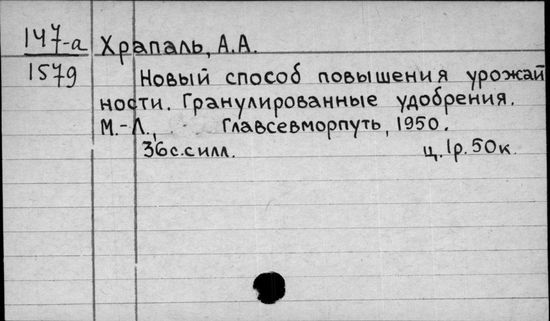 147-а Храпаль, А.А.
1579 Новый способ повышения урожай
ности. Гранулированные удобрения.
М.-Л., Главсевморпуть, 1950.
36с.силл. ц. 1р. 50к.